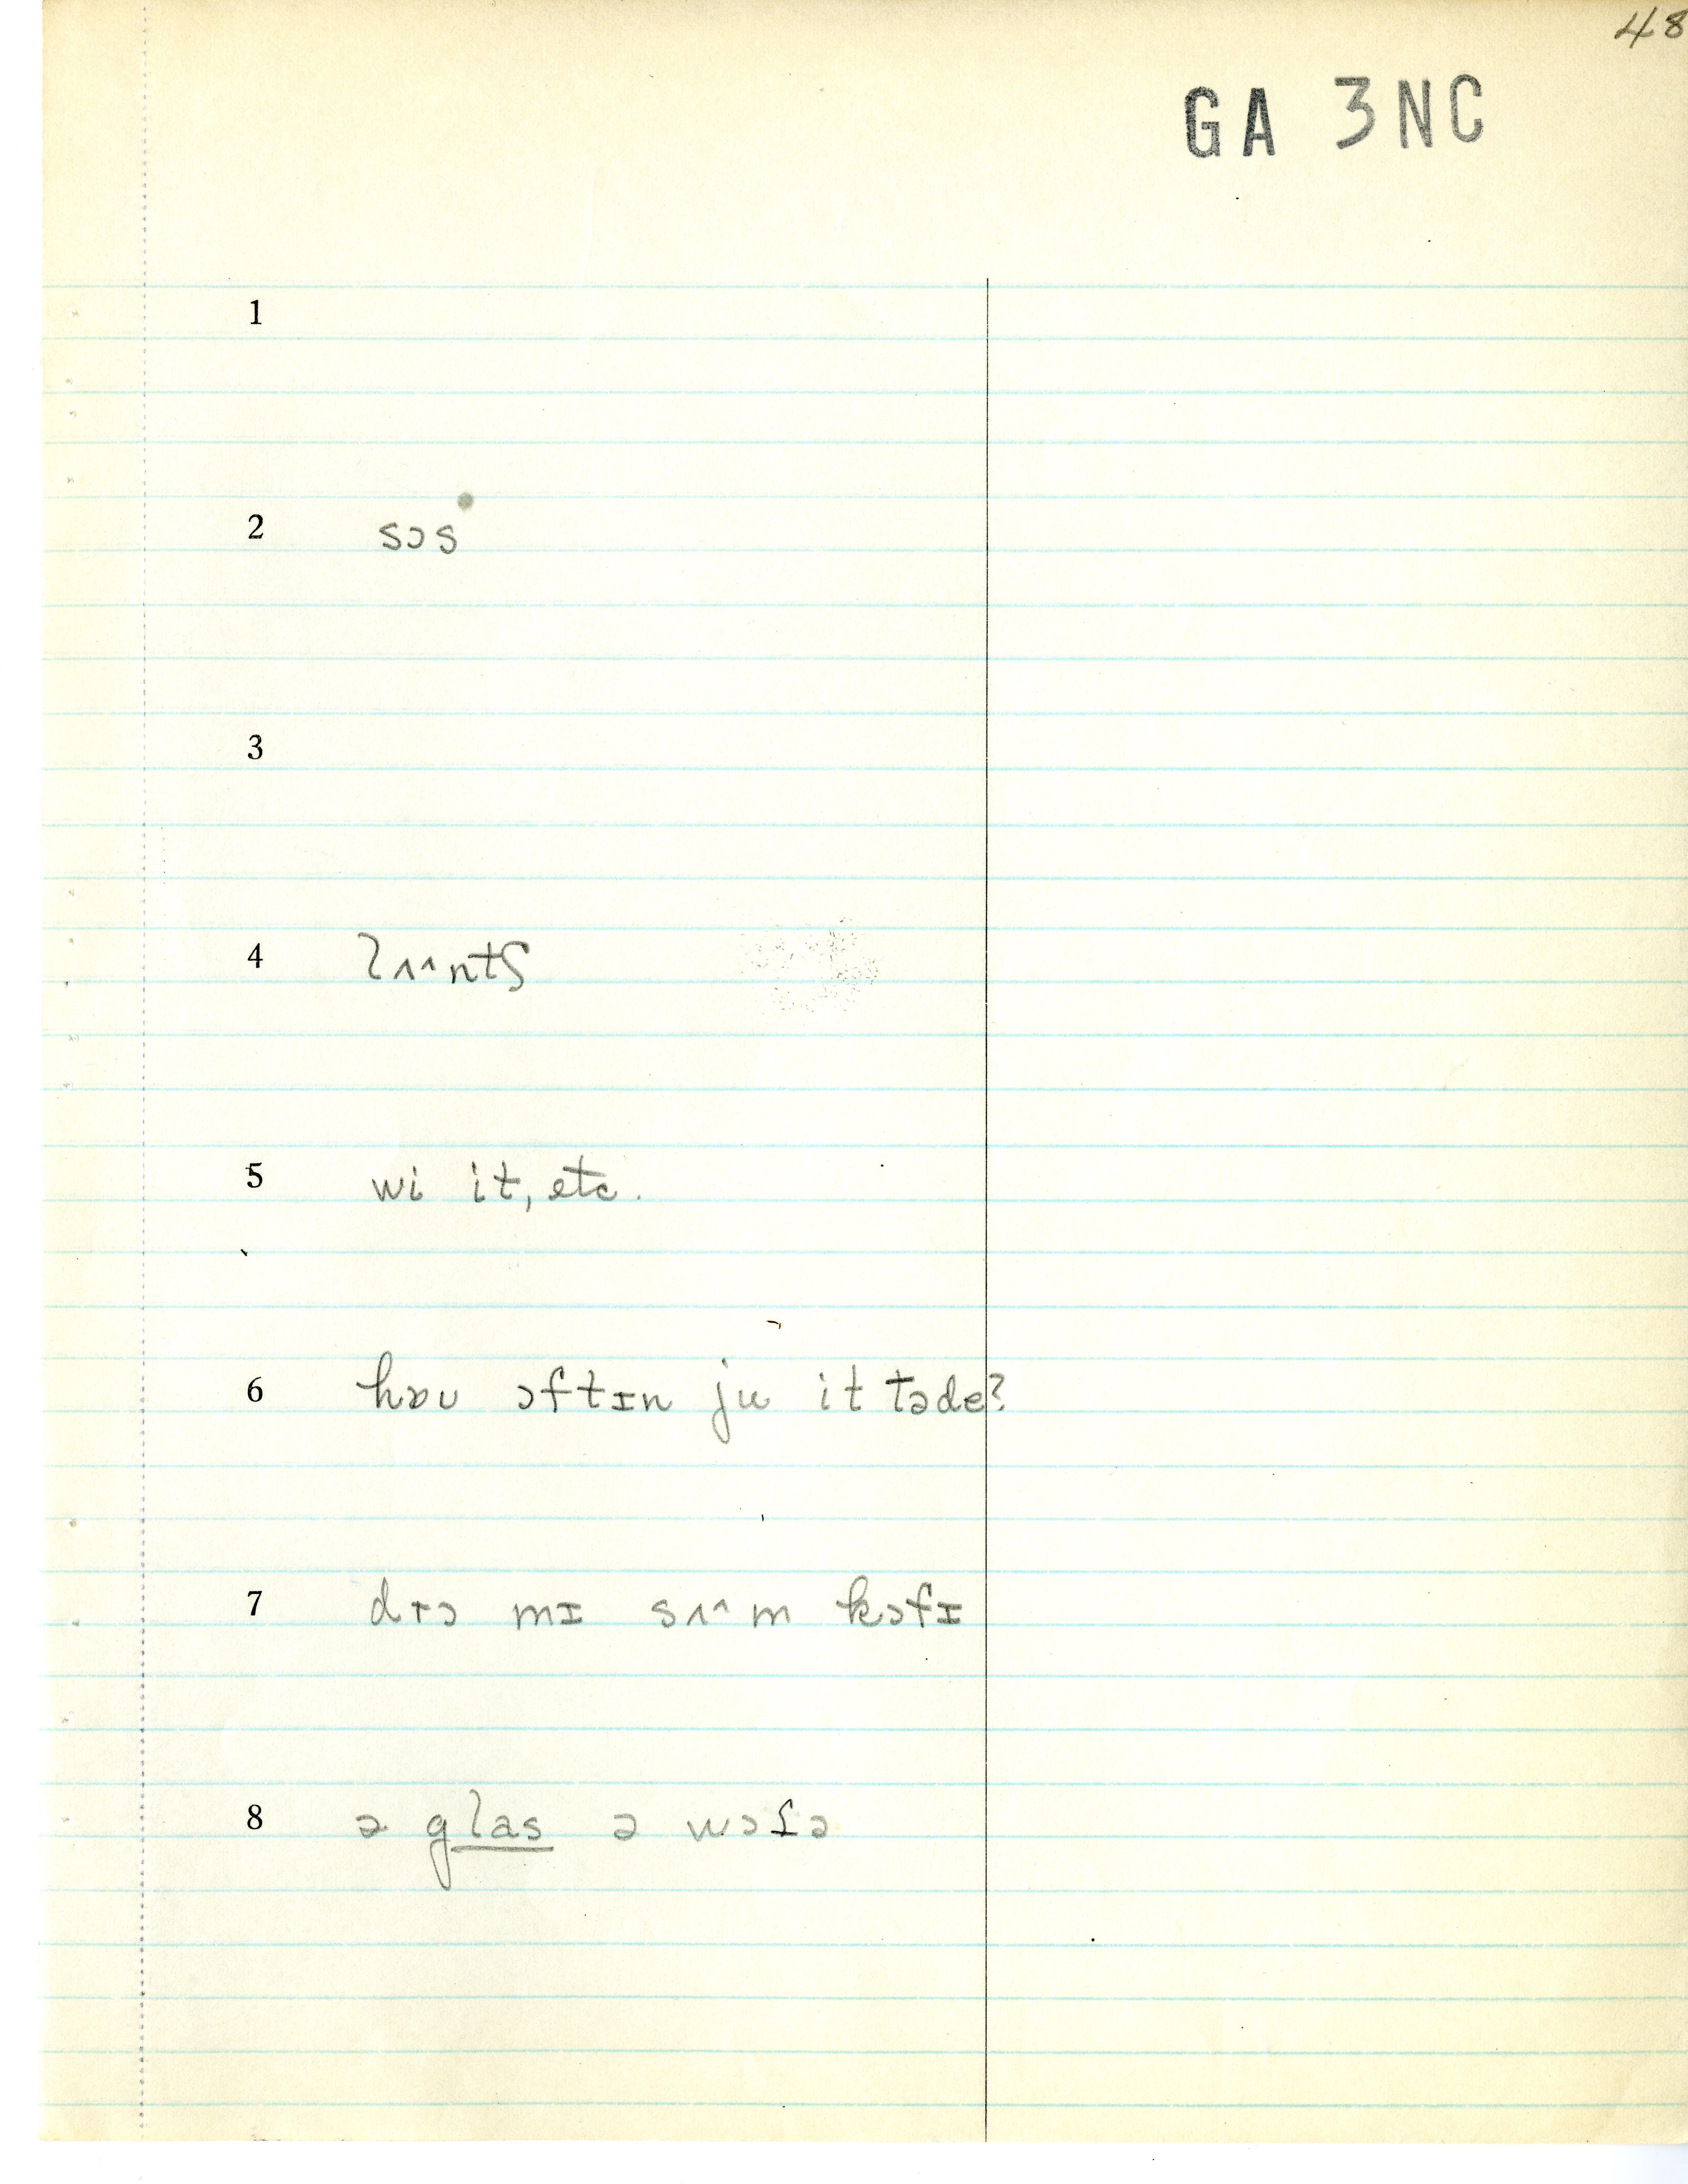 48
GA 3NC
1
2 sɔs
3
4 lʌ^ntʃ
5 wi it, etc.
6 hɒu ɔftɪn ju it təde?
7 drɔ mɪ sʌ^m kɔfɪ
8 ə glas ə wɔɾə